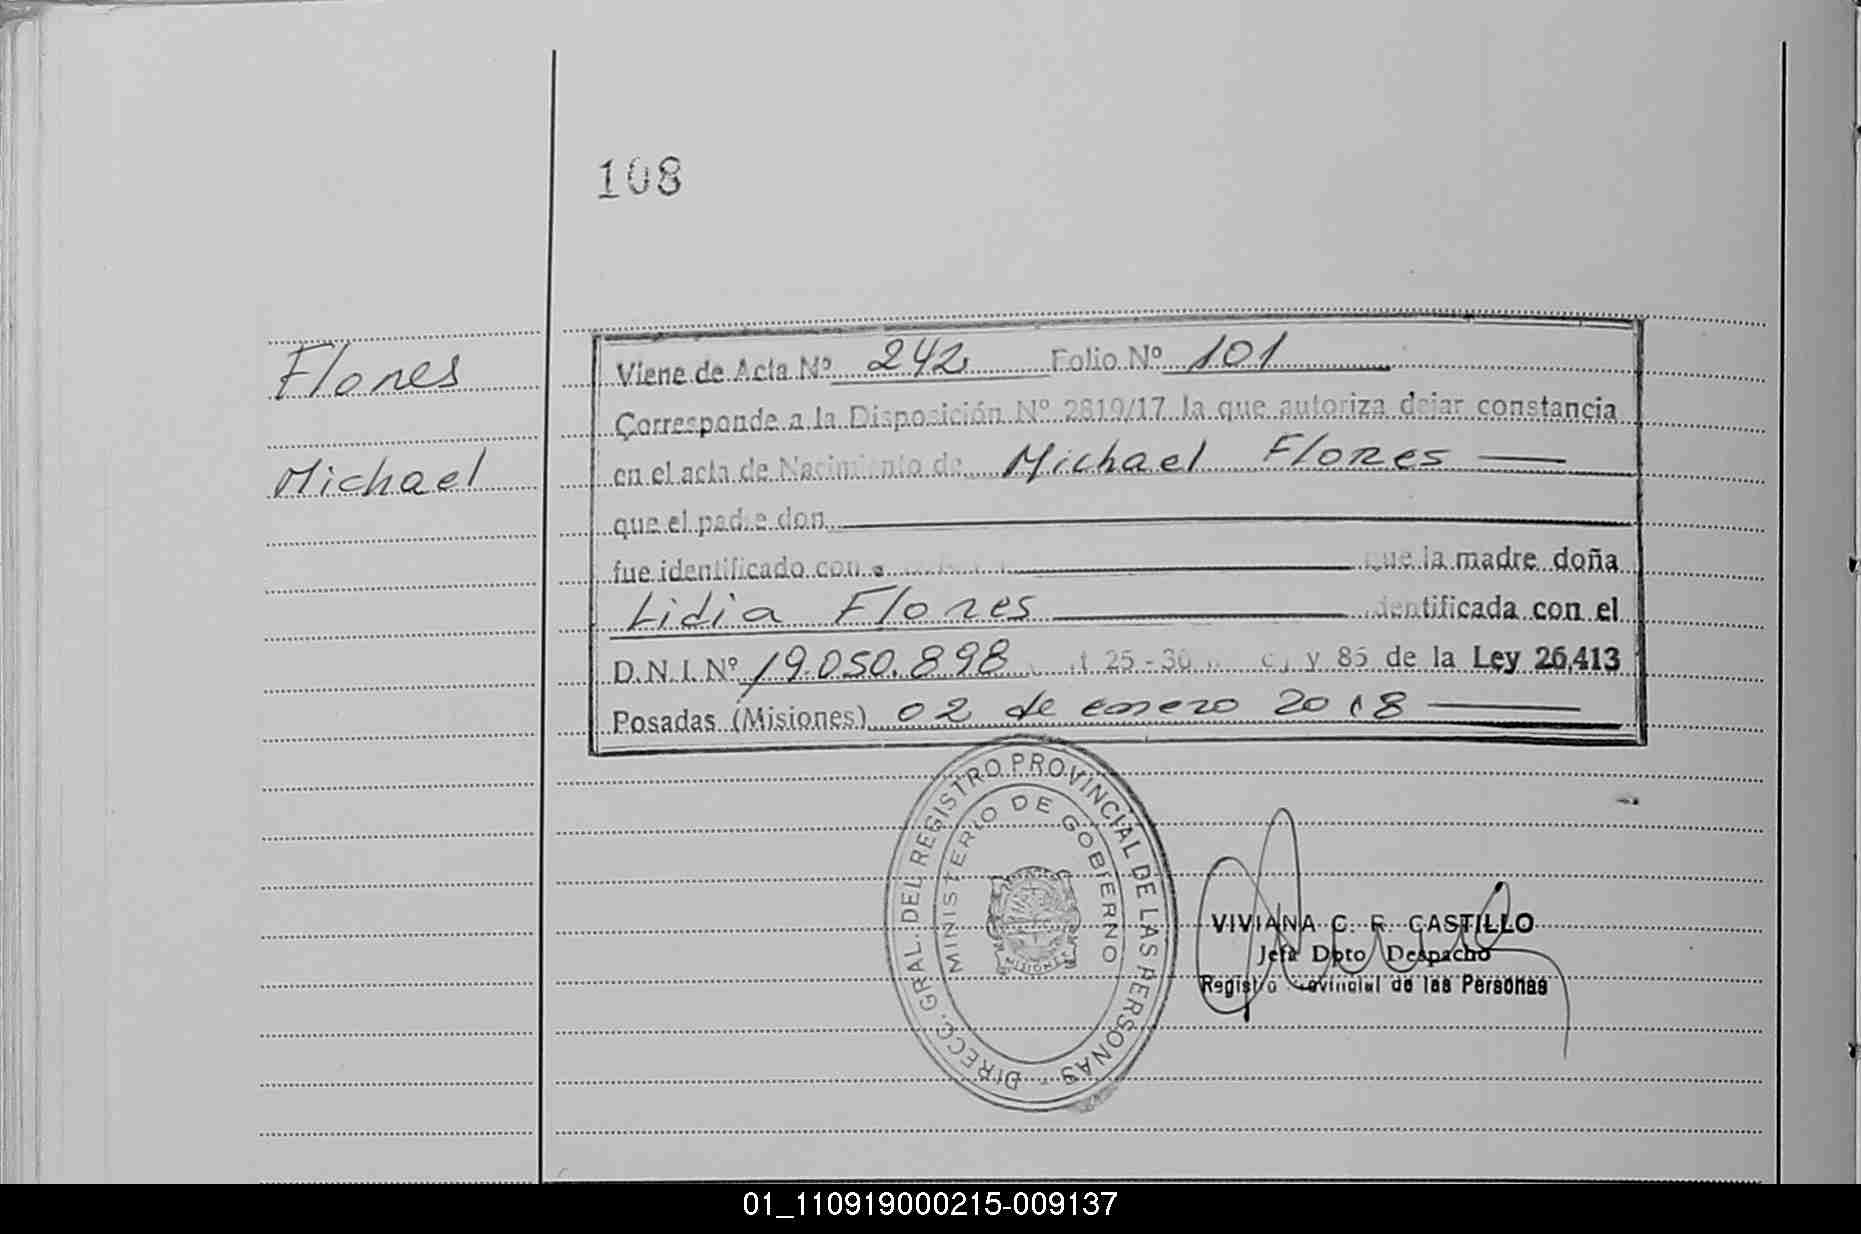 108
Flores
Michael
Viene de Acta Nº 242 Folio Nº 101
Corresponde a la Disposición Nº 2819/17 la que autoriza dejar constancia
en el acta de Nacimiento de Michael Flores
que el padre don
fue identificado con que la madre doña
Lidia Flores identificada con el
D.N.I. Nº 19.050.898 25-30 y 85 de la Ley 26.413
Posadas (Misiones) 02 de enero 2018
DIRECC. GRAL. DEL REGISTRO PROVINCIAL DE LAS PERSONAS -
MINISTERIO DE GOBIERNO
MISIONES
VIVIANA C. F. CASTILLO
Jefa Dpto Despacho
Registro Provincial de las Personas
01_110919000215-009137